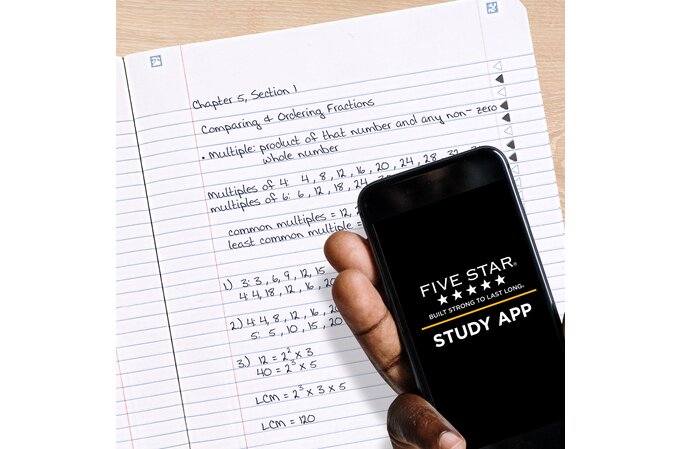 Chapter 5, Section 1
Comparing & Ordering Fractions
• Multiple: product of that number and any non-zero
whole number
multiples of 4 4, 8, 12, 16, 20, 24, 28, 32
multiples of 6: 6, 12, 18, 24
common multiples = 12,
least common multiple =
1) 3: 3, 6, 9, 12, 15
4 4, 18, 12, 16, 20
2) 4 4, 8, 12, 16, 20
5: 5, 10, 15, 20
3.) 12 = 2² x 3
40 = 2³ x 5
LCM = 2³ x 3 x 5
LCM = 120
FIVE STAR®
BUILT STRONG TO LAST LONG.
STUDY APP